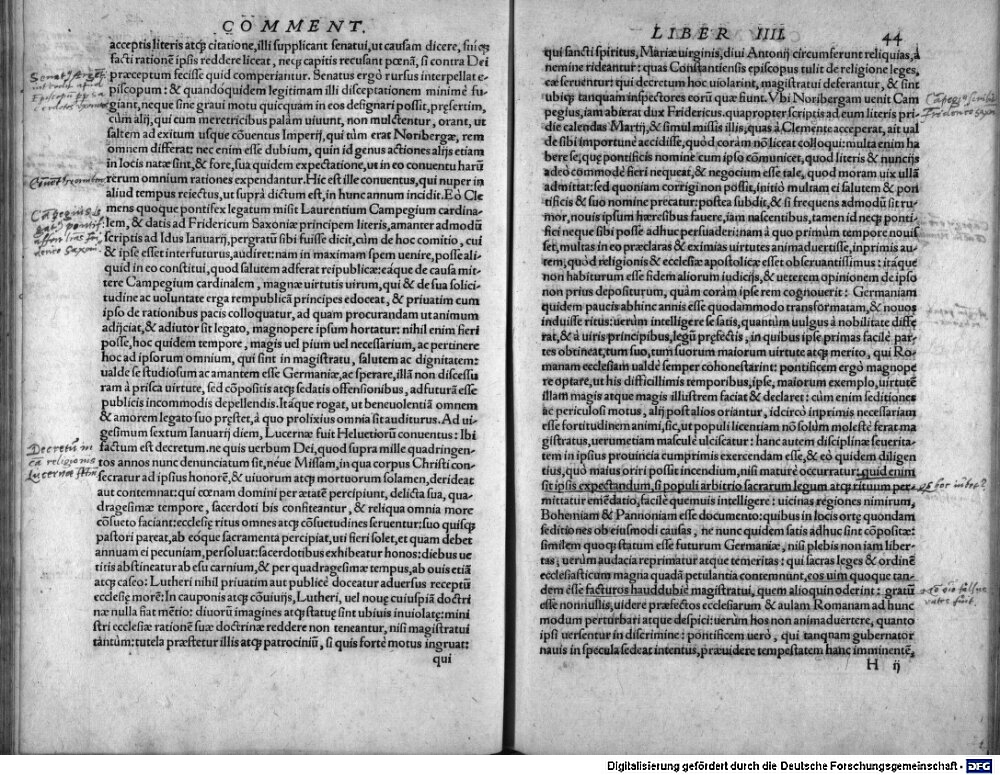 COMMENT.
acceptis literis atq; citatione, illi supplicant senatui, ut causam dicere, suiq;
facti rationē ipsis reddere liceat, neq; capitis recusant pœnā, si contra Dei
præceptum fecisse quid comperiantur. Senatus ergò rursus interpellat e-
piscopum: & quandoquidem legitimam illi disceptationem minimè fu-
giant, neque sine graui motu quicquam in eos designari possit, præsertim,
cùm alij, qui cum meretricibus palàm uiuunt, non mulctentur, orant, ut
saltem ad exitum usque cōuentus Imperij, qui tùm erat Noribergæ, rem
omnem differat: nec enim esse dubium, quin id genus actiones alijs etiam
in locis natæ sint, & fore, sua quidem expectatione, ut in eo conuentu harū
rerum omnium rationes expendantur. Hic est ille conuentus, qui nuper in
aliud tempus reiectus, ut suprà dictum est, in hunc annum incidit. Eò Cle
mens quoque pontifex legatum misit Laurentium Campegium cardina-
lem, & datis ad Fridericum Saxoniæ principem literis, amanter admodū
scriptis ad Idus Ianuarij, pergratū sibi fuisse dicit, cùm de hoc comitio, cui
& ipse esset interfuturus, audiret: nam in maximam spem uenire, posse ali-
quid in eo constitui, quod salutem adferat reipublicæ: eáque de causa mit-
tere Campegium cardinalem, magnæ uirtutis uirum, qui & de sua solici-
tudine ac uoluntate erga rempublicā principes edoceat, & priuatim cum
ipso de rationibus pacis colloquatur, ad quam procurandam ut animum
adijciat, & adiutor sit legato, magnopere ipsum hortatur: nihil enim fieri
posse, hoc quidem tempore, magis uel pium uel necessarium, ac pertinere
hoc ad ipsorum omnium, qui sint in magistratu, salutem ac dignitatem:
ualde se studiosum ac amantem esse Germaniæ, ac sperare, illā non discessu
ram à prisca uirtute, sed cōpositis atq; sedatis offensionibus, adfuturā esse
publicis incommodis depellendis. Itáque rogat, ut beneuolentiā omnem
& amorem legato suo præstet, à quo prolixius omnia sit auditurus. Ad ui-
gesimum sextum Ianuarij diem, Lucernæ fuit Heluetiorū conuentus: Ibi
factum est decretum. ne quis uerbum Dei, quod supra mille quadringen-
tos annos nunc denunciatum sit, néue Missam, in qua corpus Christi con-
secratur ad ipsius honorē, & uiuorum atq; mortuorum solamen, derideat
aut contemnat: qui cœnam domini per ætatē percipiunt, delicta sua, qua-
dragesimæ tempore, sacerdoti bis confiteantur, & reliqua omnia more
cōsueto faciant: ecclesię ritus omnes atq; cōsuetudines seruentur: suo quisq;
pastori pareat, ab eóque sacramenta percipiat, uti fieri solet, et quam debet
annuam ei pecuniam, persoluat: sacerdotibus exhibeatur honos: diebus ue
titis abstineatur ab esu carnium, & per quadragesimæ tempus, ab ouis etiā
atq; caseo: Lutheri nihil priuatim aut publicè doceatur aduersus receptū
ecclesię morē: In cauponis atq; cōuiuijs, Lutheri, uel nouę cuiuspiā doctri
næ nulla fiat mētio: diuorū imagines atq; statuę sint ubiuis inuiolatę: mini
stri ecclesiæ rationē suæ doctrinæ reddere non teneantur, nisi magistratui
tantùm: tutela præstetur illis atq; patrociniū, si quis fortè motus ingruat:
qui
Decretū in
LIBER IIII. 44
qui sancti spiritus, Mariæ uirginis, diui Antonij circumferunt reliquias, à
nemine rideantur: quas Constantiensis episcopus tulit de religione leges,
eæ seruentur: qui decretum hoc uiolarint, magistratui deferantur, & sint
ubiq; tanquam inspectores eorū quæ fiunt. Vbi Noribergam uenit Cam
pegius, iam abierat dux Fridericus. quapropter scriptis ad eum literis pri-
die calendas Martij, & simul missis illis, quas à Clemente acceperat, ait ual
de sibi importunè accidisse, quòd coràm nō liceat colloqui: multa enim ha
bere se, quę pontificis nomine cum ipso cōmunicet, quod literis & nuncijs
adeò commodè fieri nequeat, & negocium esse tale, quod moram uix ullā
admittat: sed quoniam corrigi non possit, initiò multam ei salutem & pon
tificis & suo nomine precatur: postea subdit, & si frequens admodū sit ru-
mor, nouis ipsum hæresibus fauere, iam nascentibus, tamen id neq; ponti-
fici neque sibi posse adhuc persuaderi: nam à quo primùm tempore nouis
set, multas in eo præclaras & eximias uirtutes animaduertisse, inprimis au-
tem, quòd religionis & ecclesiæ apostolicæ esset obseruantissimus: itáque
non habiturum esse fidem aliorum iudicijs, & ueterem opinionem de ipso
non prius depositurum, quàm coràm ipse rem cognouerit: Germaniam
quidem paucis abhinc annis esse quodammodo transformatam, & nouos
induisse ritus: uerùm intelligere se satis, quantùm uulgus à nobilitate diffe
rat, & à uiris principibus, legū præfectis, in quibus ipse primas facilè par-
tes obtineat, tum suo, tum suorum maiorum uirtute atq; merito, qui Ro-
manam ecclesiam ualdè semper cohonestarint: pontificem ergò magnope
re optare, ut his difficillimis temporibus, ipse, maiorum exemplo, uirtutē
illam magis atque magis illustrem faciat & declaret: cùm enim seditiones
ac periculosi motus, alij post alios oriantur, idcircò inprimis necessariam
esse fortitudinem animi, sic, ut populi licentiam nō solùm molestè ferat ma
gistratus, uerumetiam masculè ulciscatur: hanc autem disciplinæ seuerita-
tem in ipsius prouincia cumprimis exercendam esse, & eò quidem diligen
tius, quò maius oriri possit incendium, nisi maturè occurratur: quid enim
sit ipsis expectandum, si populi arbitrio sacrarum legum atq; rituum per-
mittatur emēdatio, facilè quemuis intelligere: uicinas regiones nimirum,
Bohemiam & Pannoniam esse documento: quibus in locis ortę quondam
seditiones ob eiusmodi causas, ne nunc quidem satis adhuc sint cōpositæ:
similem quoq; statum esse futurum Germaniæ, nisi plebis non iam liber-
tas, uerùm audacia reprimatur atque temeritas: qui sacras leges & ordinē
ecclesiasticum magna quadā petulantia contemnunt, eos uim quoque tan-
dem esse facturos haud dubiè magistratui, quem alioquin oderint: gratū
esse nonnullis, uidere præfectos ecclesiarum & aulam Romanam ad hunc
modum perturbari atque despici: uerùm hos non animaduertere, quanto
ipsi uersentur in discrimine: pontificem uerò, qui tanquam gubernator
nauis in specula sedeat intentus, præuidere tempestatem hanc imminentē,
H ij
Digitalisierung gefördert durch die Deutsche Forschungsgemeinschaft - DFG